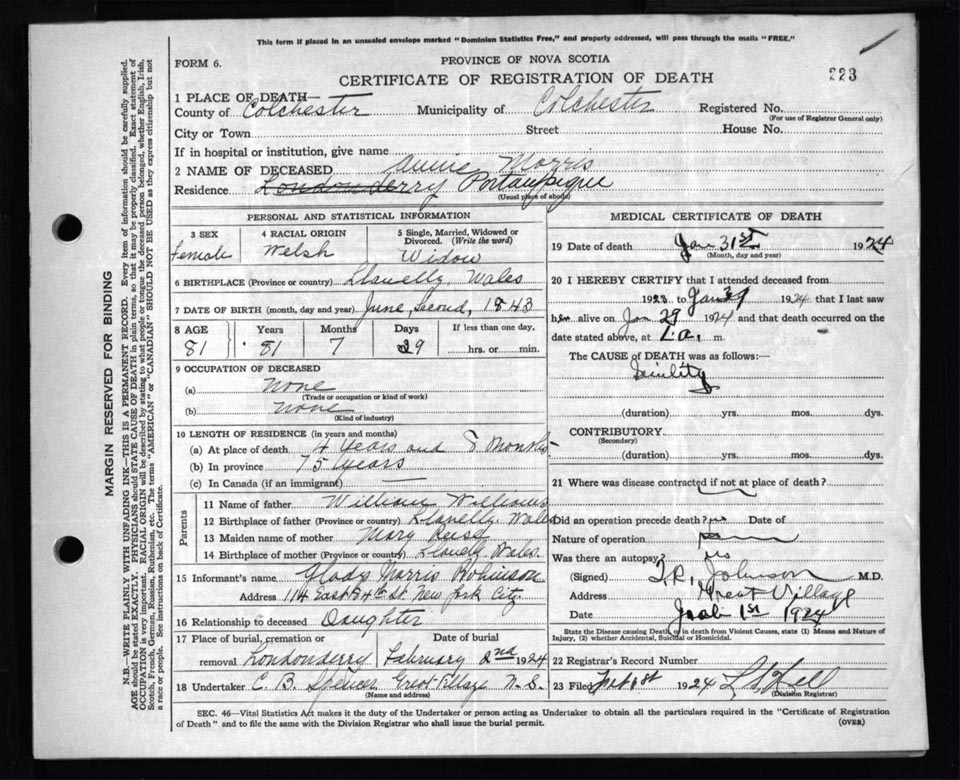 This form if placed in an unsealed envelope marked "Dominion Statistics Free," and properly addressed, will pass through the mails "FREE."
FORM 6.
PROVINCE OF NOVA SCOTIA
CERTIFICATE OF REGISTRATION OF DEATH
223
1 PLACE OF DEATH—
County of Colchester Municipality of Colchester Registered No.
(For use of Registrar General only)
City or Town Street House No.
If in hospital or institution, give name
2 NAME OF DECEASED Annie Morris
Residence Londonderry Portaupique
(Usual place of abode)
PERSONAL AND STATISTICAL INFORMATION
3 SEX
Female
4 RACIAL ORIGIN
Welsh
5 Single, Married, Widowed or Divorced. (Write the word)
Widow
6 BIRTHPLACE (Province or country) Llanelly, Wales
7 DATE OF BIRTH (month, day and year) June, Second, 1843
8 AGE Years Months Days If less than one day,
81 81 7 29 hrs. or min.
9 OCCUPATION OF DECEASED
(a) None
(Trade or occupation or kind of work)
(b) None
(Kind of industry)
10 LENGTH OF RESIDENCE (in years and months)
(a) At place of death 4 Years and 8 Months
(b) In province 75 Years
(c) In Canada (if an immigrant)
Parents
11 Name of father William Williams
12 Birthplace of father (Province or country) Llanelly, Wales
13 Maiden name of mother Mary
14 Birthplace of mother (Province or country) Llanelly Wales.
15 Informant's name Gladys Morris Robinson
Address 114 East 84th St. New York City.
16 Relationship to deceased Daughter
17 Place of burial, cremation or removal Londonderry
Date of burial February 2nd 1924
18 Undertaker C. B. Spencer Great Village N. S.
(Name and address)
MEDICAL CERTIFICATE OF DEATH
19 Date of death Jan 31st 1924
(Month, day and year)
20 I HEREBY CERTIFY that I attended deceased from
1923 to Jan 31 1924 that I last saw
her alive on Jan 29 1924 and that death occurred on
date stated above, at 2 a. m.
The CAUSE OF DEATH was as follows:—
Senility
(duration) yrs. mos. dys.
CONTRIBUTORY
(Secondary)
(duration) yrs. mos. dys.
21 Where was disease contracted if not at place of death?
Did an operation precede death? no Date of
Nature of operation
Was there an autopsy? no
(Signed) T. R. Johnson M.D.
Address Great Village
Date Feb 1st 1924
State the Disease causing Death, or in death from Violent Causes, state (1) Means and Nature of Injury, (2) whether Accidental, Suicidal or Homicidal.
22 Registrar's Record Number
23 Filed Feb 1st 1924
(Division Registrar)
SEC. 46—Vital Statistics Act makes it the duty of the Undertaker or person acting as Undertaker to obtain all the particulars required in the "Certificate of Registration of Death" and to file the same with the Division Registrar who shall issue the burial permit.
(OVER)
MARGIN RESERVED FOR BINDING
N.B.—WRITE PLAINLY WITH UNFADING INK—THIS IS A PERMANENT RECORD. Every item of information should be carefully supplied.
AGE should be stated EXACTLY. PHYSICIANS should STATE CAUSE OF DEATH in plain terms, so that it may be properly classified. Exact statement of
OCCUPATION is very important. RACIAL ORIGIN will be described by stating to what people or tongue the deceased person belonged, whether English, Irish,
Scotch, French, German, Russian, Ruthenian, etc. The terms "AMERICAN" or "CANADIAN" SHOULD NOT BE USED as they express citizenship but not
a race or people. See instructions on back of Certificate.